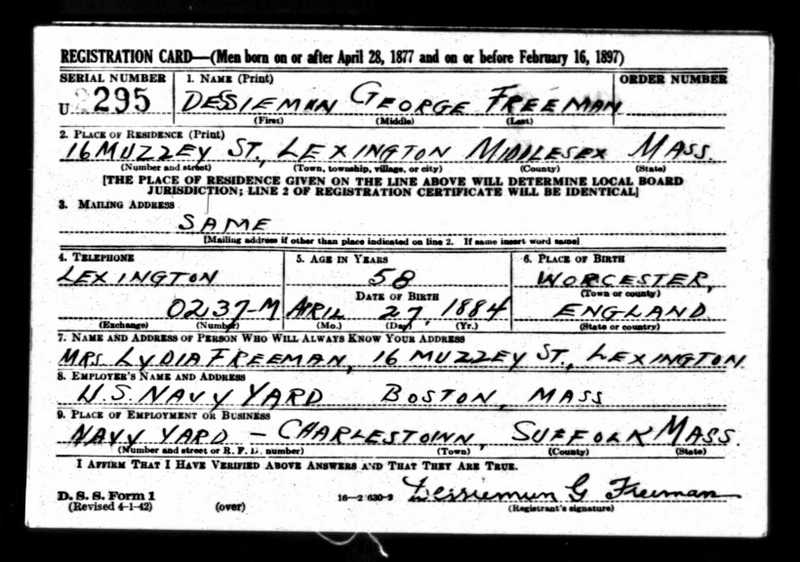 REGISTRATION CARD—(Men born on or after April 28, 1877 and on or before February 16, 1897)
SERIAL NUMBER 1. NAME (Print) ORDER NUMBER
U 2295 DESSIEMUN GEORGE FREEMAN
(First) (Middle) (Last)
2. PLACE OF RESIDENCE (Print)
16 MUZZEY ST., LEXINGTON MIDDLESEX MASS.
(Number and street) (Town, township, village, or city) (County) (State)
[THE PLACE OF RESIDENCE GIVEN ON THE LINE ABOVE WILL DETERMINE LOCAL BOARD
JURISDICTION; LINE 2 OF REGISTRATION CERTIFICATE WILL BE IDENTICAL]
3. MAILING ADDRESS
SAME
[Mailing address if other than place indicated on line 2. If same insert word same]
4. TELEPHONE 5. AGE IN YEARS 6. PLACE OF BIRTH
LEXINGTON 58 WORCESTER,
DATE OF BIRTH (Town or county)
0237-M APRIL 27, 1884 ENGLAND
(Exchange) (Number) (Mo.) (Day) (Yr.) (State or country)
7. NAME AND ADDRESS OF PERSON WHO WILL ALWAYS KNOW YOUR ADDRESS
MRS. LYDIA FREEMAN, 16 MUZZEY ST., LEXINGTON.
8. EMPLOYER'S NAME AND ADDRESS
U.S. NAVY YARD BOSTON, MASS
9. PLACE OF EMPLOYMENT OR BUSINESS
NAVY YARD - CHARLESTOWN, SUFFOLK MASS.
(Number and street or R. F. D. number) (Town) (County) (State)
I AFFIRM THAT I HAVE VERIFIED ABOVE ANSWERS AND THAT THEY ARE TRUE.
D. S. S. Form 1 16—21630-2 Dessiemun G Freeman
(Revised 4-1-42) (over) (Registrant's signature)